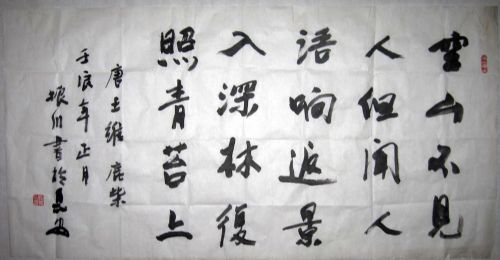 空山不見
人但聞人
語响返景
入深林復
照青苔上
唐王維鹿柴
壬辰年正月
振川書於